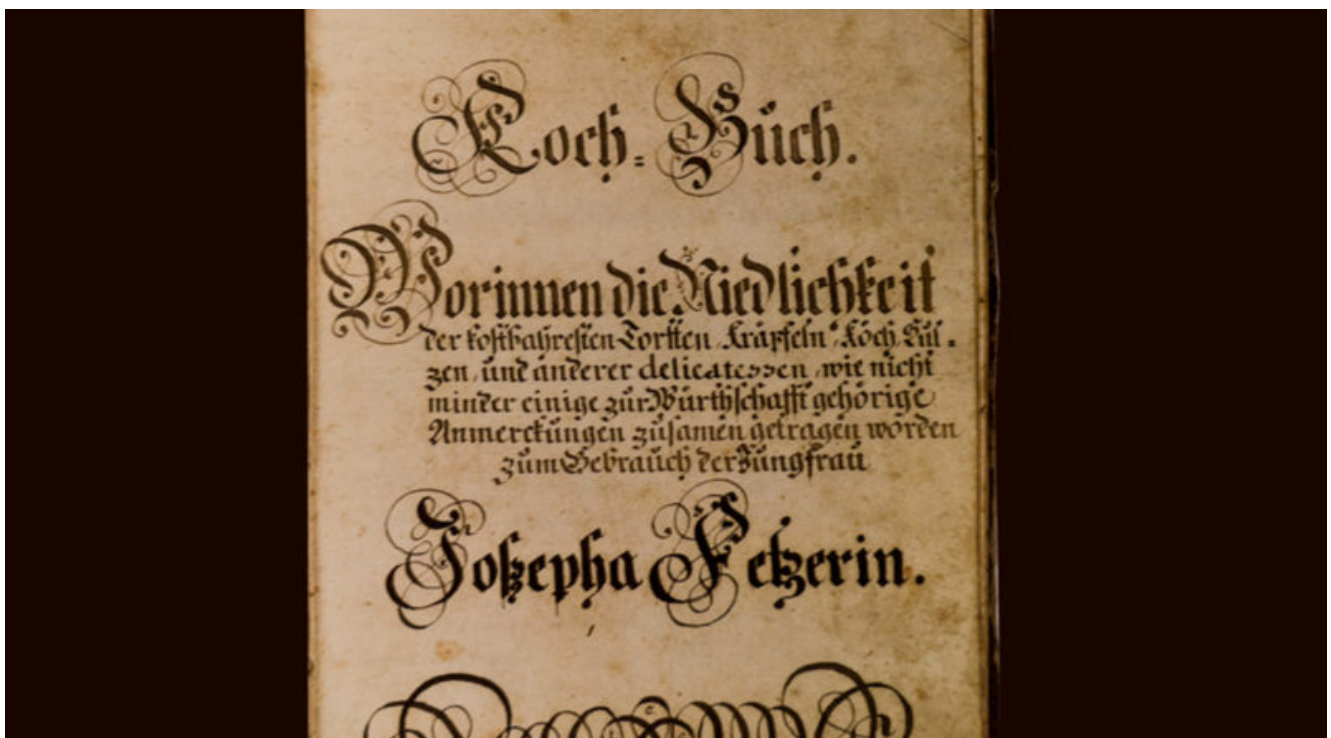 Koch=Buch.
Worinnen die Niedlichkeit
der kostbahresten Tortten, Kräpfeln, Köch, Sul=
zen, und anderer delicatessen, wie nicht
minder einige zur Würthschafft gehörige
Anmerckungen zusamen getragen worden
zum Gebrauch der Jungfrau
Joßepha Fetzerin.